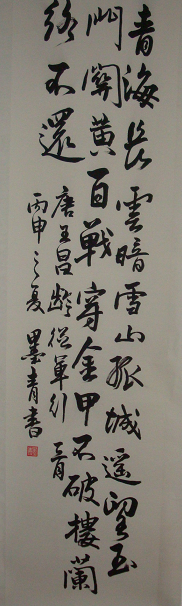 青海長雲暗雪山孤城遙望玉
門關黃百戰穿金甲不破樓蘭
終不還
唐王昌齡從軍行
丙申之夏墨青書